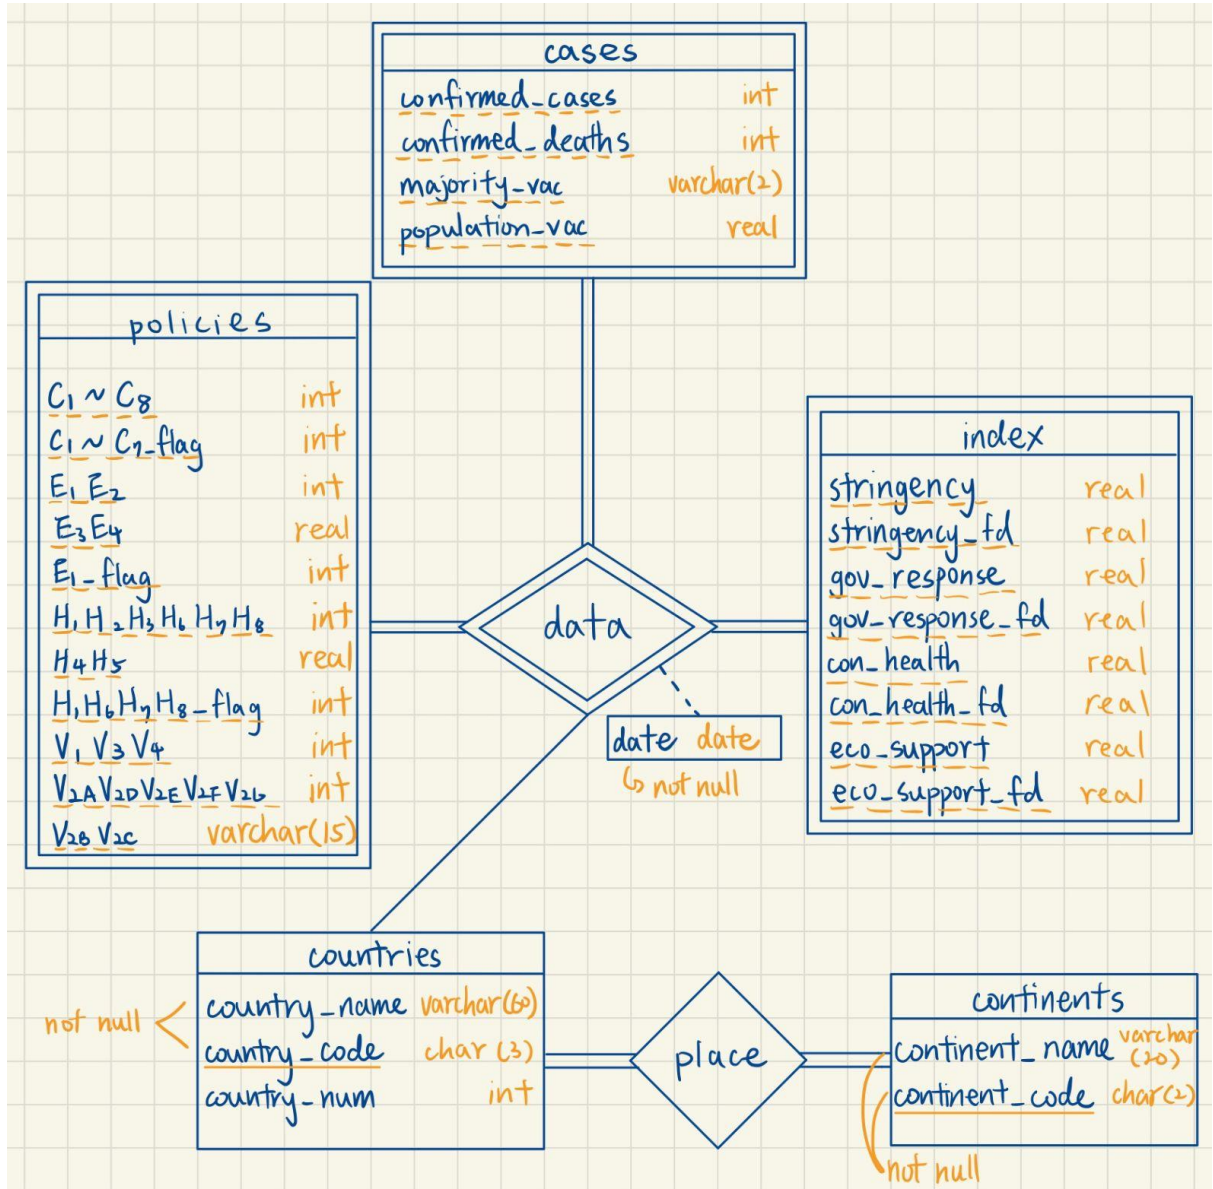 cases
confirmed_cases int
confirmed_deaths int
majority_vac varchar(2)
population_vac real
policies
C1 ~ C8 int
C1 ~ C7_flag int
E1 E2 int
E3 E4 real
E1_flag int
H1 H2 H3 H6 H7 H8 int
H4 H5 real
H1 H6 H7 H8_flag int
V1 V3 V4 int
V2A V2D V2E V2F V2G int
V2B V2C varchar(15)
index
stringency real
stringency_fd real
gov_response real
gov_response_fd real
con_health real
con_health_fd real
eco_support real
eco_support_fd real
data
date date
↳ not null
countries
country_name varchar(60)
country_code char(3)
country_num int
not null
place
continents
continent_name varchar
(20)
continent_code char(2)
not null